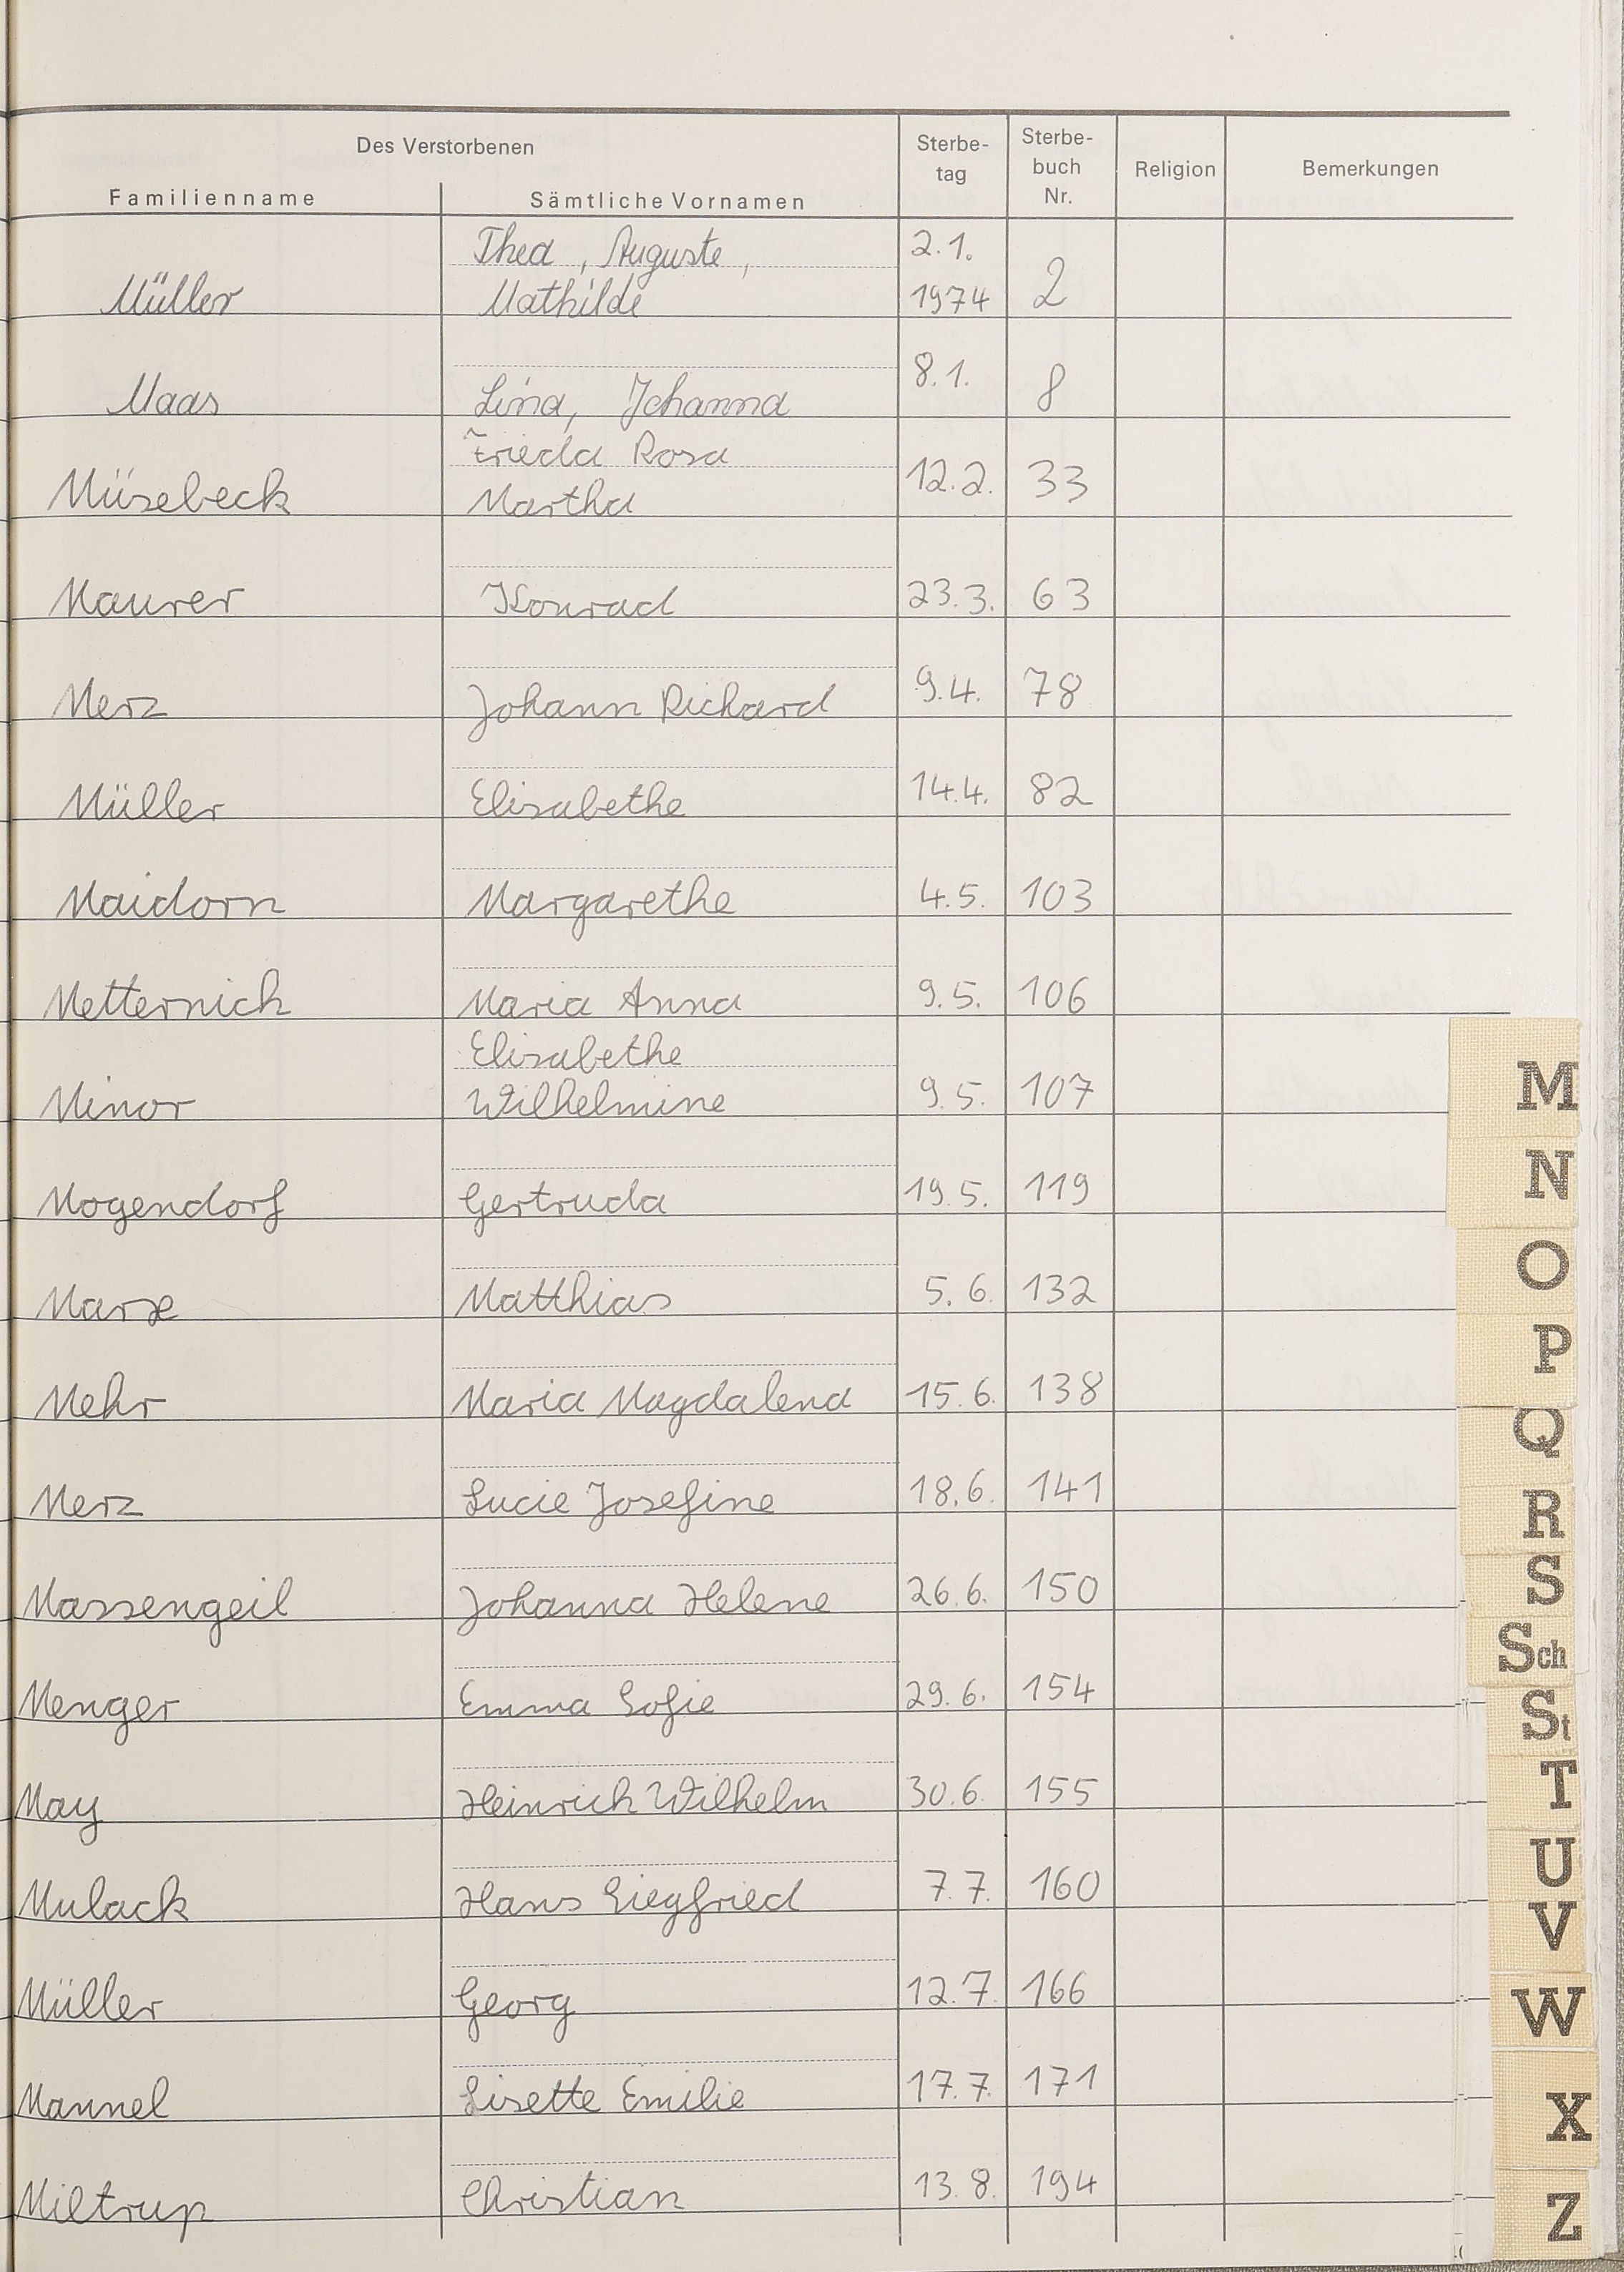 Des Verstorbenen
Sterbe-
tag
Sterbe-
buch
Nr.
Religion
Bemerkungen
Familienname
Sämtliche Vornamen
Thea, Auguste,
2.1.
Müller Mathilde 1974 2
Maas Lina, Johanna 8.1. 8
Frieda Rosa
Müsebeck Martha 12.2. 33
Maurer Konrad 23.3. 63
Merz Johann Richard 9.4. 78
Müller Elisabethe 14.4. 82
Maidorn Margarethe 4.5. 103
Metternich Maria Anna 9.5. 106
Elisabethe
Minor Wilhelmine 9.5. 107
Mogendorf Gertruda 19.5. 119
Marx Matthias 5.6. 132
Mehr Maria Magdalena 15.6. 138
Merz Lucie Josefine 18.6. 141
Massengeil Johanna Helene 26.6. 150
Menger Emma Sofie 29.6. 154
May Heinrich Wilhelm 30.6. 155
Mulack Hans Siegfried 7.7. 160
Müller Georg 12.7. 166
Mannel Lisette Emilie 17.7. 171
Miltrup Christian 13.8. 194
M
N
O
P
Q
R
S
Sch
St
T
U
V
W
X
Z